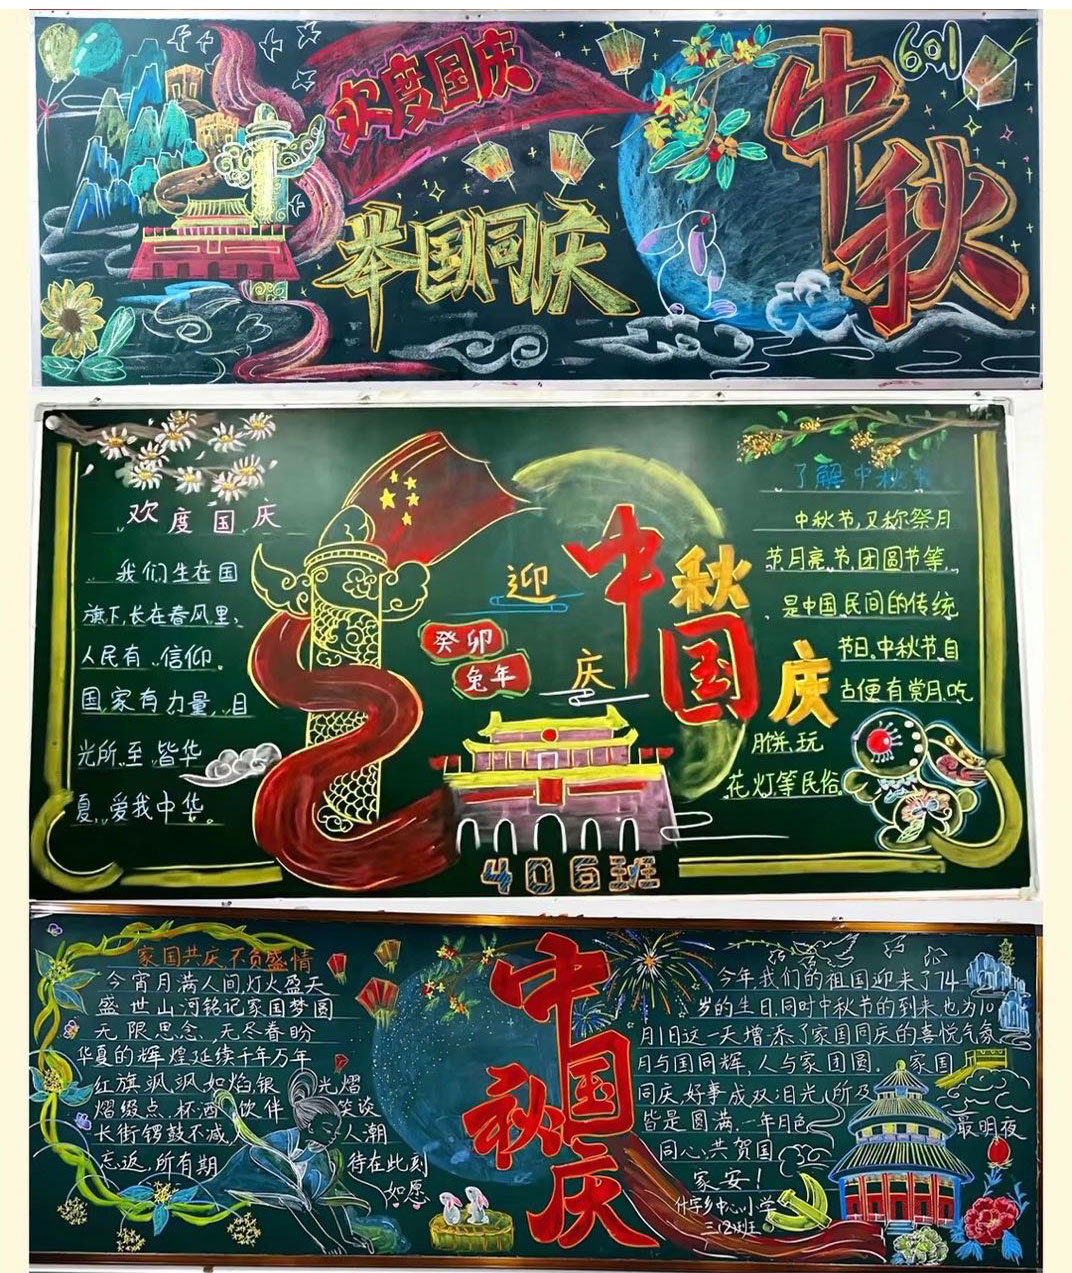 欢度国庆
举国同庆
中秋
601
欢度国庆
我们生在国
旗下,长在春风里,
人民有信仰,
国家有力量,目
光所至皆华
夏,爱我中华。
迎
中秋
癸卯
兔年
庆
国庆
406班
了解中秋节
中秋节,又称祭月
节月亮节团圆节等,
是中国民间的传统
节日。中秋节自
古便有赏月、吃
月饼、玩
花灯等民俗
家国共庆不负盛情
今宵月满人间灯火盈天
盛世山河铭记家国梦圆
无限思念,无尽眷盼
华夏的辉煌延续千年万年
红旗飒飒如焰,银光熠
熠缀点,杯酒饮伴笑谈
长街锣鼓不减人潮
忘返,所有期待在此刻
如愿
中秋
国庆
今年我们的祖国迎来了74
岁的生日,同时中秋节的到来也为10
月1日这一天增添了家国同庆的喜悦气氛
月与国同辉,人与家团圆。家国
同庆,好事成双,目光所及
皆是圆满,一年月色最明夜
同心共贺国
家安!
什字乡中心小学
三(2)班